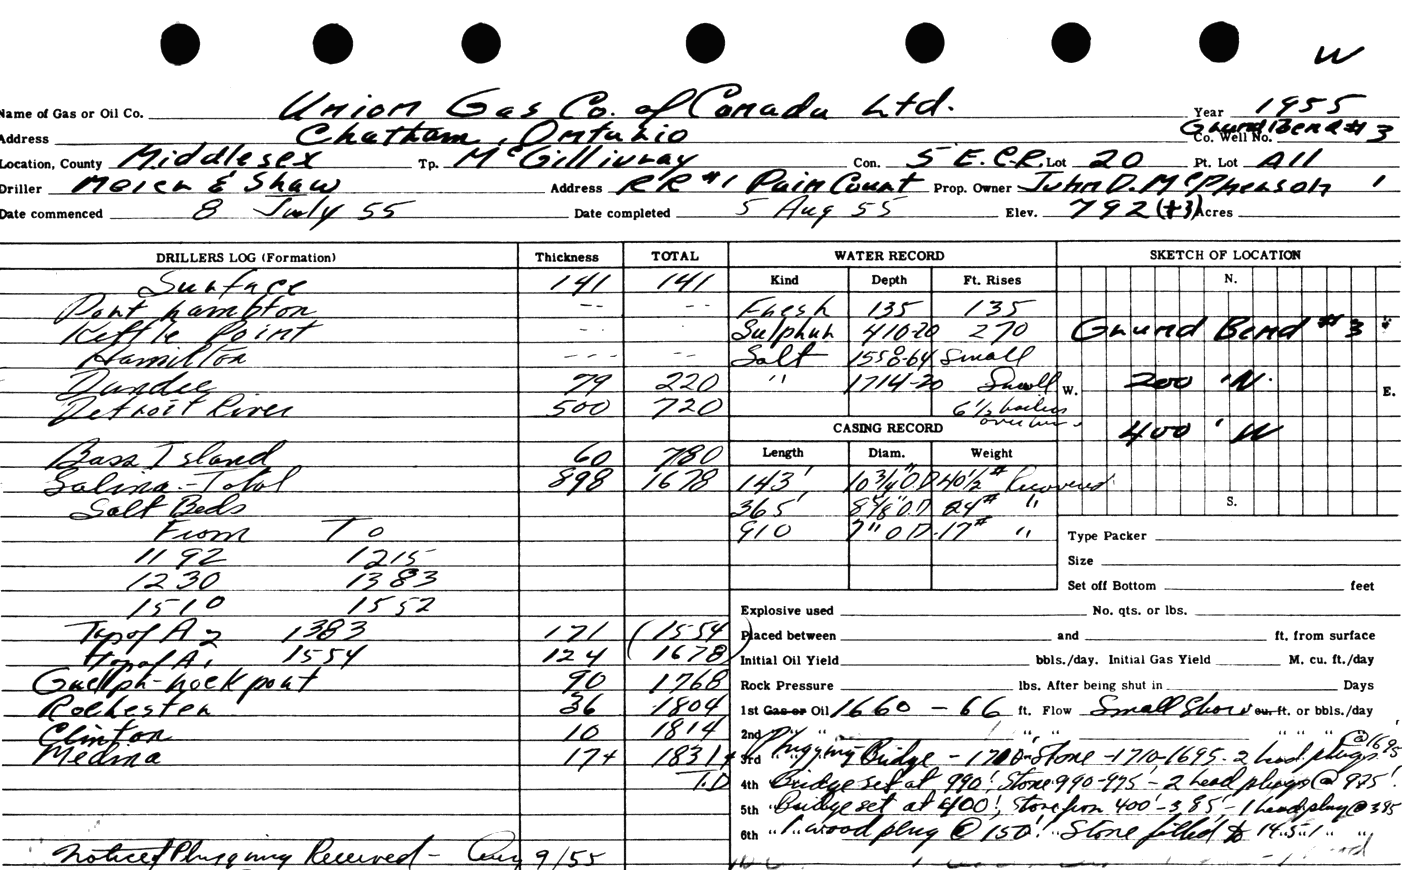 W
Name of Gas or Oil Co. Union Gas Co. of Canada Ltd. Year 1955
Address Chatham, Ontario Co. Well No. Grand Bend # 3
Location, County Middlesex Tp. McGillivray Con. 5 E.C.R. Lot 20 Pt. Lot All
Driller Meier & Shaw Address RR #1 Pain Court Prop. Owner John D. McPherson
Date commenced 8 July 55 Date completed 5 Aug 55 Elev. 792 (+3) Acres
DRILLERS LOG (Formation) Thickness TOTAL WATER RECORD SKETCH OF LOCATION
Surface 141 141 Kind Depth Ft. Rises N.
Port hambton -- - -- Fresh 135 135
Kettle Point - - - Sulphur 410-20 270 Grand Bend # 3
Hamilton - - - - - - Salt 1558-64 Small
Dundee 79 220 " 1714-20 Small W. 200 'N. E.
Detroit River 500 720 6 1/2 bailers
CASING RECORD 400 ' W
Bass Island 60 780 Length Diam. Weight
Salina - Total 898 1678 143' 10 3/4" O.D 40 1/2 # Recovered
Salt Beds 365 8 5/8" O.D 24 # " S.
From To 910 7" O D. 17 # "
Type Packer
1192 1215
Size
1230 1383 Set off Bottom feet
1510 1552 Explosive used No. qts. or lbs.
Top of A2 1383 171 (1554) Placed between and ft. from surface
Top of A1 1554 124 (1678) Initial Oil Yield bbls./day. Initial Gas Yield M. cu. ft./day
Guelph-Lockport 90 1768 Rock Pressure lbs. After being shut in Days
Rochester 36 1804 1st Gas or Oil 1660 - 66 ft. Flow Small Show cu. ft. or bbls./day
Clinton 10 1814 2nd " " " " " " "
Medina 17+ 1831+ 3rd Plugging Bridge - 1710 - Stone - 1710-1695 - 2 lead plugs @ 1695
T.D 4th Bridge set at 990! Stone 990-975' - 2 lead plugs @ 975'
5th Bridge set at 400', Stone from 400'-385' - 1 lead plug @ 385
6th 1 wood plug @ 150' Stone filled to 145
Notice of Plugging Received - Aug 9/55